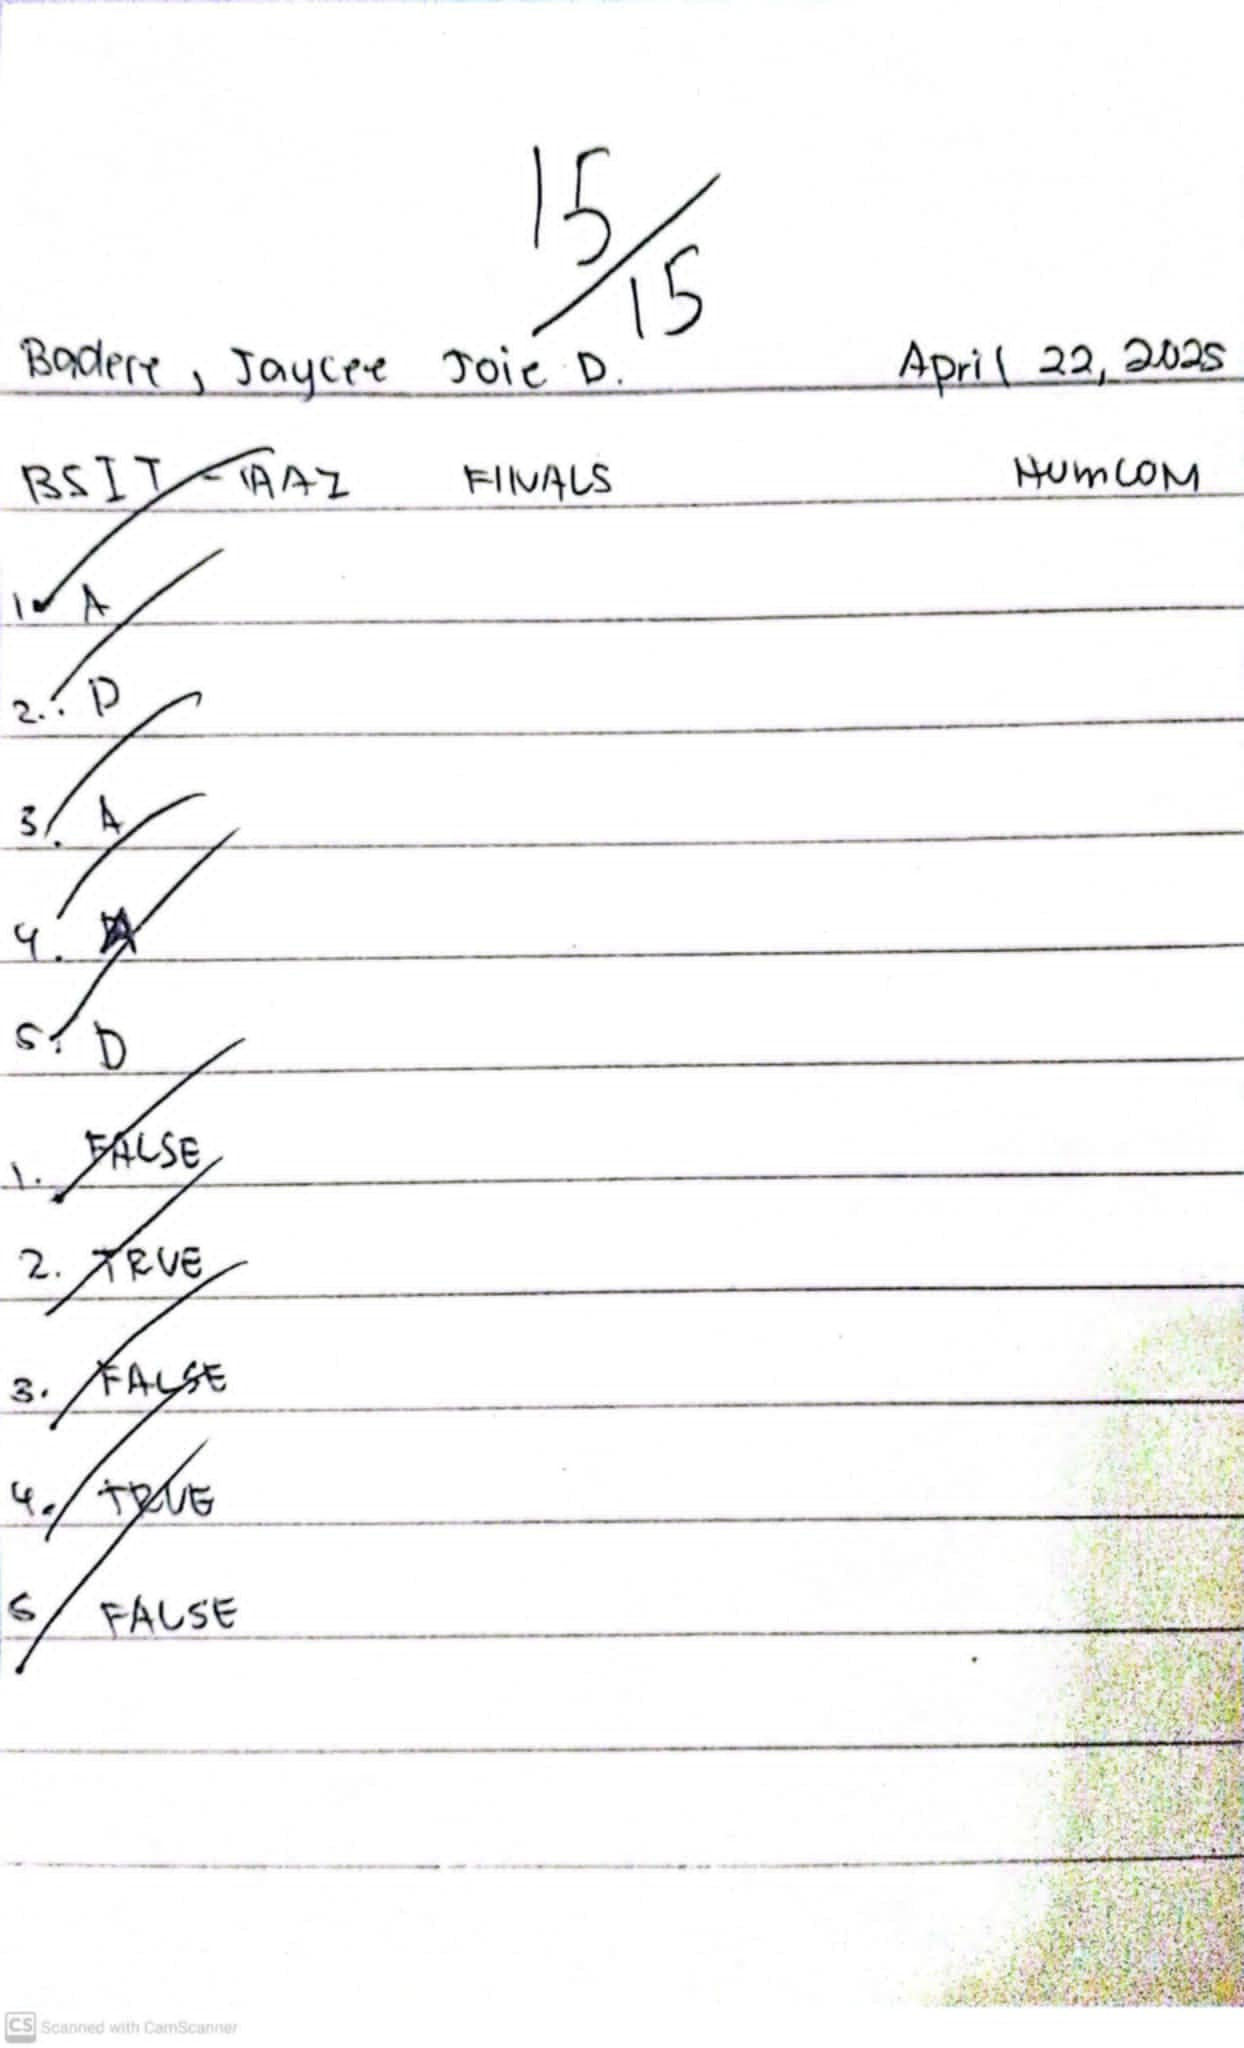 15/15
Badere, Jaycee Joie D. April 22, 2025
BSIT - FINALS HUMCOM
1. A
2. D
3. A
4. A
5. D
1. FALSE
2. TRUE
3. FALSE
4. TRUE
5 FALSE
CS Scanned with CamScanner